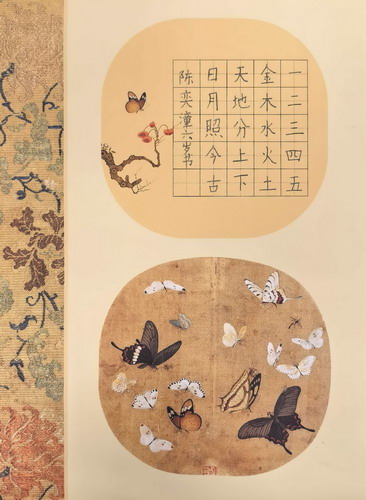 一二三四五
金木水火土
天地分上下
日月照今古
陈奕潼六岁书